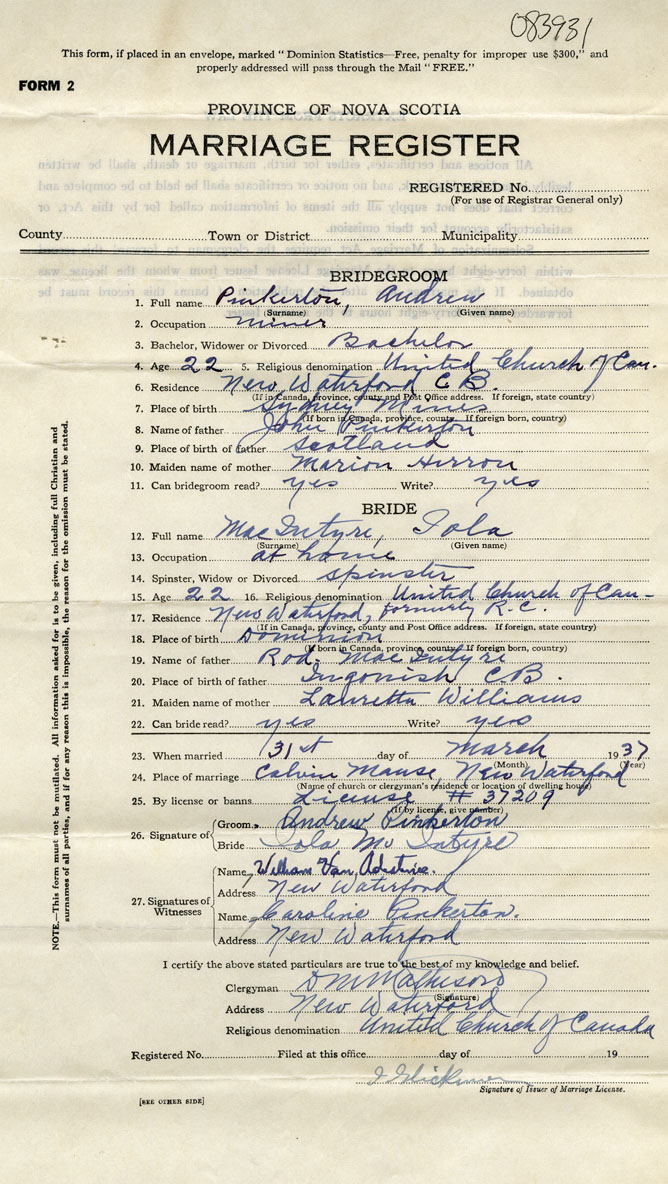 083931
This form, if placed in an envelope, marked " Dominion Statistics—Free, penalty for improper use $300," and
properly addressed will pass through the Mail " FREE."
FORM 2
PROVINCE OF NOVA SCOTIA
MARRIAGE REGISTER
REGISTERED No.
(For use of Registrar General only)
County Town or District Municipality
BRIDEGROOM
1. Full name Pinkerton, Andrew
(Surname) (Given name)
2. Occupation miner
3. Bachelor, Widower or Divorced Bachelor
4. Age 22 5. Religious denomination United Church of Can.
6. Residence New Waterford C B.
(If in Canada, province, county and Post Office address. If foreign, state country)
7. Place of birth Sydney Mines
(If born in Canada, province, county. If foreign born, country)
8. Name of father John Pinkerton
9. Place of birth of father Scotland
10. Maiden name of mother Marion Herron
11. Can bridegroom read? yes Write? yes
BRIDE
12. Full name MacIntyre, Iola
(Surname) (Given name)
13. Occupation at home
14. Spinster, Widow or Divorced spinster
15. Age 22 16. Religious denomination United Church of Can-
17. Residence New Waterford, formerly R.C.
(If in Canada, province, county and Post Office address. If foreign, state country)
18. Place of birth Dominion
(If born in Canada, province, county. If foreign born, country)
19. Name of father Rod. MacIntyre
20. Place of birth of father Ingonish C B.
21. Maiden name of mother Lauretta Williams
22. Can bride read? yes Write? yes
23. When married 31st day of March 1937
(Month) (Year)
24. Place of marriage Calvin Manse, New Waterford
(Name of church or clergyman's residence or location of dwelling house)
25. By license or banns License # 37209
(If by license, give number)
26. Signature of Groom Andrew Pinkerton
Bride Iola Mc Intyre
27. Signatures of Witnesses
Name William Van
Address New Waterford
Name Caroline Pinkerton.
Address New Waterford
I certify the above stated particulars are true to the best of my knowledge and belief.
Clergyman D M Matheson
(Signature)
Address New Waterford
Religious denomination United Church of Canada
Registered No. Filed at this office day of 19
Signature of Issuer of Marriage License.
[SEE OTHER SIDE]
NOTE.—This form must not be mutilated. All information asked for is to be given, including full Christian and
surnames of all parties, and if for any reason this is impossible, the reason for the omission must be stated.